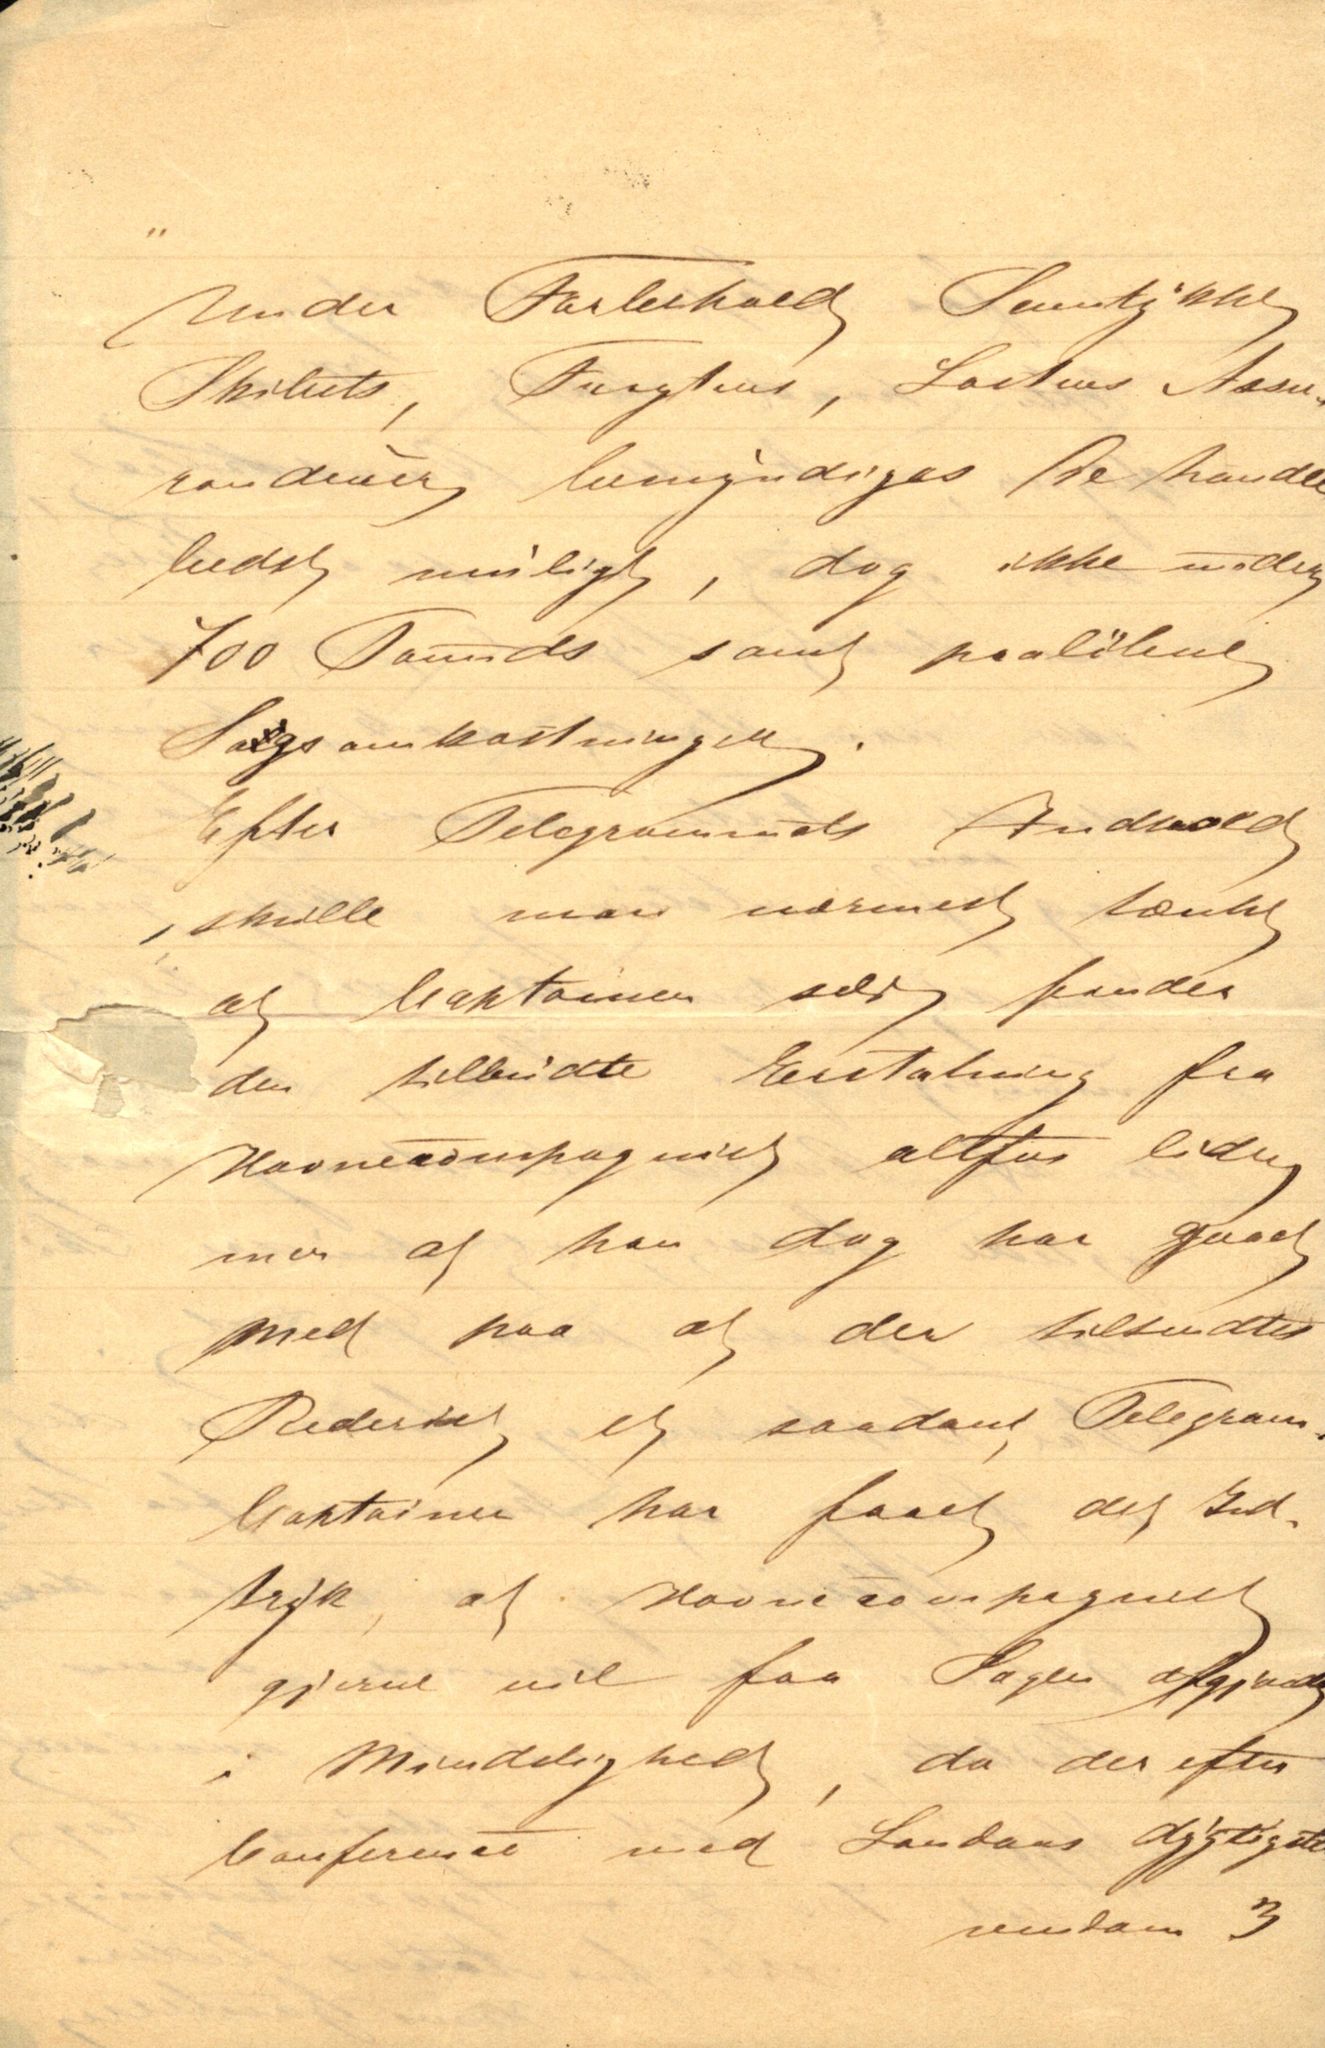 "
Under Forbehold Samtykke
Skibets, Fragtens, Lastens Assu-
randeurer bemyndiges De handle
bedst muligt, dog ikke under
700 Pounds samt paaløbent
Sagsomkostninger.
Efter Telegrammets Indhold
skulle man nærmest tænkt
at Captainen selv fander
den tilbudte Erstatning fra
Havnecompagniet altfor liden
men at han dog har gaaet
med paa at der tilsendtes
Rederiet et saadant Telegram.
Captainen har faaet det Ind-
tryk, at Havnecompagniet
gjerne vil faa Sagen afgjordt
i Mindelighed, da der efter
Conference med Londons dygtigste
vendom 3